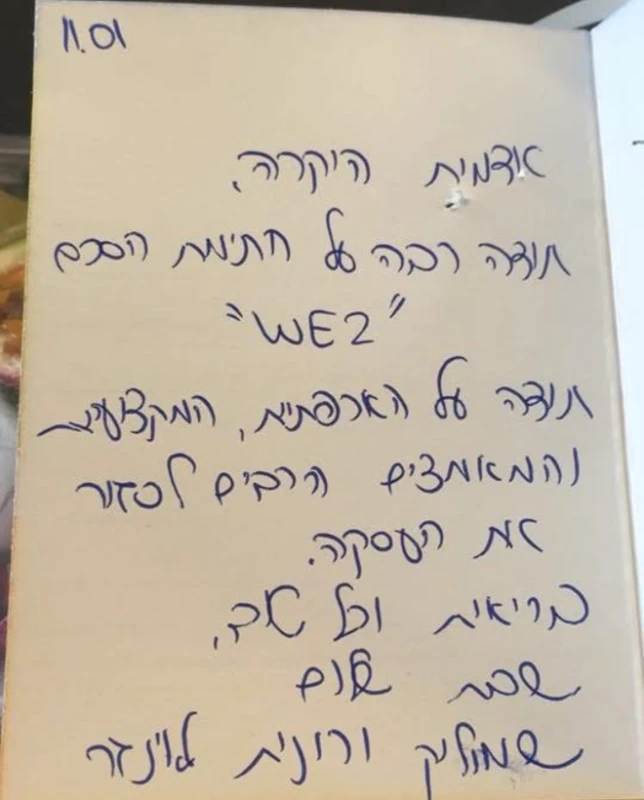 11.01
אדמית היקרה,
תודה רבה על חתימת הסכם
"WE2"
תודה על האכפתיות, המקצועיות
והמאמצים הרבים לסגור
את העסקה.
בריאות וכל טוב,
שבת שלום
שמוליק ורונית